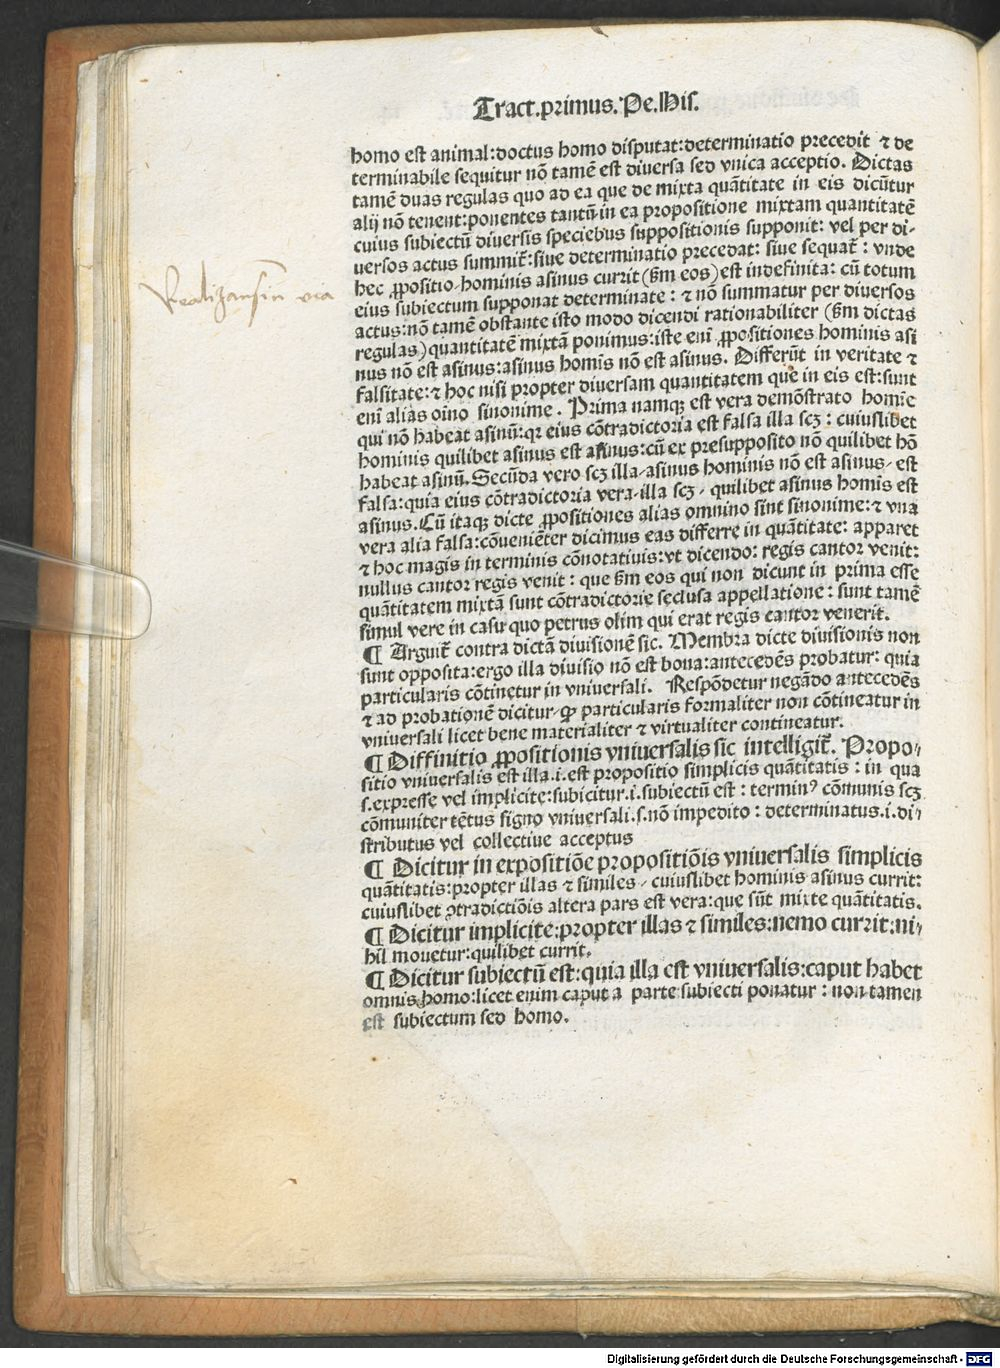 Tract.primus.Pe.His.
homo est animal:doctus homo disputat:determinatio precedit ⁊ de
terminabile sequitur nō tamē est diuersa sed vnica acceptio. Dictas
tamē duas regulas quo ad ea que de mixta quātitate in eis dicūtur
alij nō tenent:ponentes tantū in ea propositione mixtam quantitatē
cuius subiectū diuersis speciebus suppositionis supponit: vel per di-
uersos actus summit̄:siue determinatio precedat: siue sequat̄: vnde
hec ꝓpositio-hominis asinus currit (ẜm eos) est indefinita: cū totum
eius subiectum supponat determinate: ⁊ nō summatur per diuersos
actus:nō tamē obstante isto modo dicendi rationabiliter (ẜm dictas
regulas) quantitatē mixtā ponimus:iste enī ꝓpositiones hominis asi
nus nō est asinus:asinus homīs nō est asinus. Differūt in veritate ⁊
falsitate:⁊ hoc nisi propter diuersam quantitatem que in eis est:sunt
enī alias oīno sinonime. Prima namqꝫ est vera demōstrato homīe
qui nō habeat asinū:qꝛ eius cōtradictoria est falsa illa scꝫ: cuiuslibet
hominis quilibet asinus est asinus:cū ex presupposito nō quilibet hō
habeat asinū. Secūda vero scꝫ illa-asinus hominis nō est asinus-est
falsa:quia eius cōtradictoria vera-illa scꝫ-quilibet asinus homīs est
asinus. Cū itaqꝫ dicte ꝓpositiones alias omnino sint sinonime:⁊ vna
vera alia falsa:cōueniēter dicimus eas differre in quātitate: apparet
⁊ hoc magis in terminis cōnotatiuis:vt dicendo: regis cantor venit:
nullus cantor regis venit: que ẜm eos qui non dicunt in prima esse
quātitatem mixtā sunt cōtradictorie seclusa appellatione: sunt tamē
simul vere in casu quo petrus olim qui erat regis cantor venerit.
¶ Arguit̄ contra dictā diuisionē sic. Membra dicte diuisionis non
sunt opposita:ergo illa diuisio nō est bona:antecedēs probatur: quia
particularis cōtinetur in vniuersali. Respōdetur negādo antecedēs
⁊ ad probationē dicitur-ꝙ particularis formaliter non cōtineatur in
vniuersali licet bene materialiter ⁊ virtualiter contineatur.
¶ Diffinitio ꝓpositionis vniuersalis sic intelligit̄. Propo-
sitio vniuersalis est illa.i.est propositio simplicis quātitatis: in qua
s.expresse vel implicite:subicitur.i.subiectū est: terminꝰ cōmunis scꝫ
cōmuniter tētus signo vniuersali.s.nō impedito: determinatus.i.di-
stributus vel collectiue acceptus
¶ Dicitur in expositiōe propositiōis vniuersalis simplicis
quātitatis:propter illas ⁊ similes-cuiuslibet hominis asinus currit:
cuiuslibet ꝯtradictiōis altera pars est vera:que sūt mixte quātitatis.
¶ Dicitur implicite:propter illas ⁊ similes:nemo currit:ni-
hīl mouetur:quilibet currit.
¶ Dicitur subiectū est:quia illa est vniuersalis:caput habet
omnis homo:licet enim caput a parte subiecti ponatur: non tamen
est subiectum sed homo.
Digitalisierung gefördert durch die Deutsche Forschungsgemeinschaft - DFG